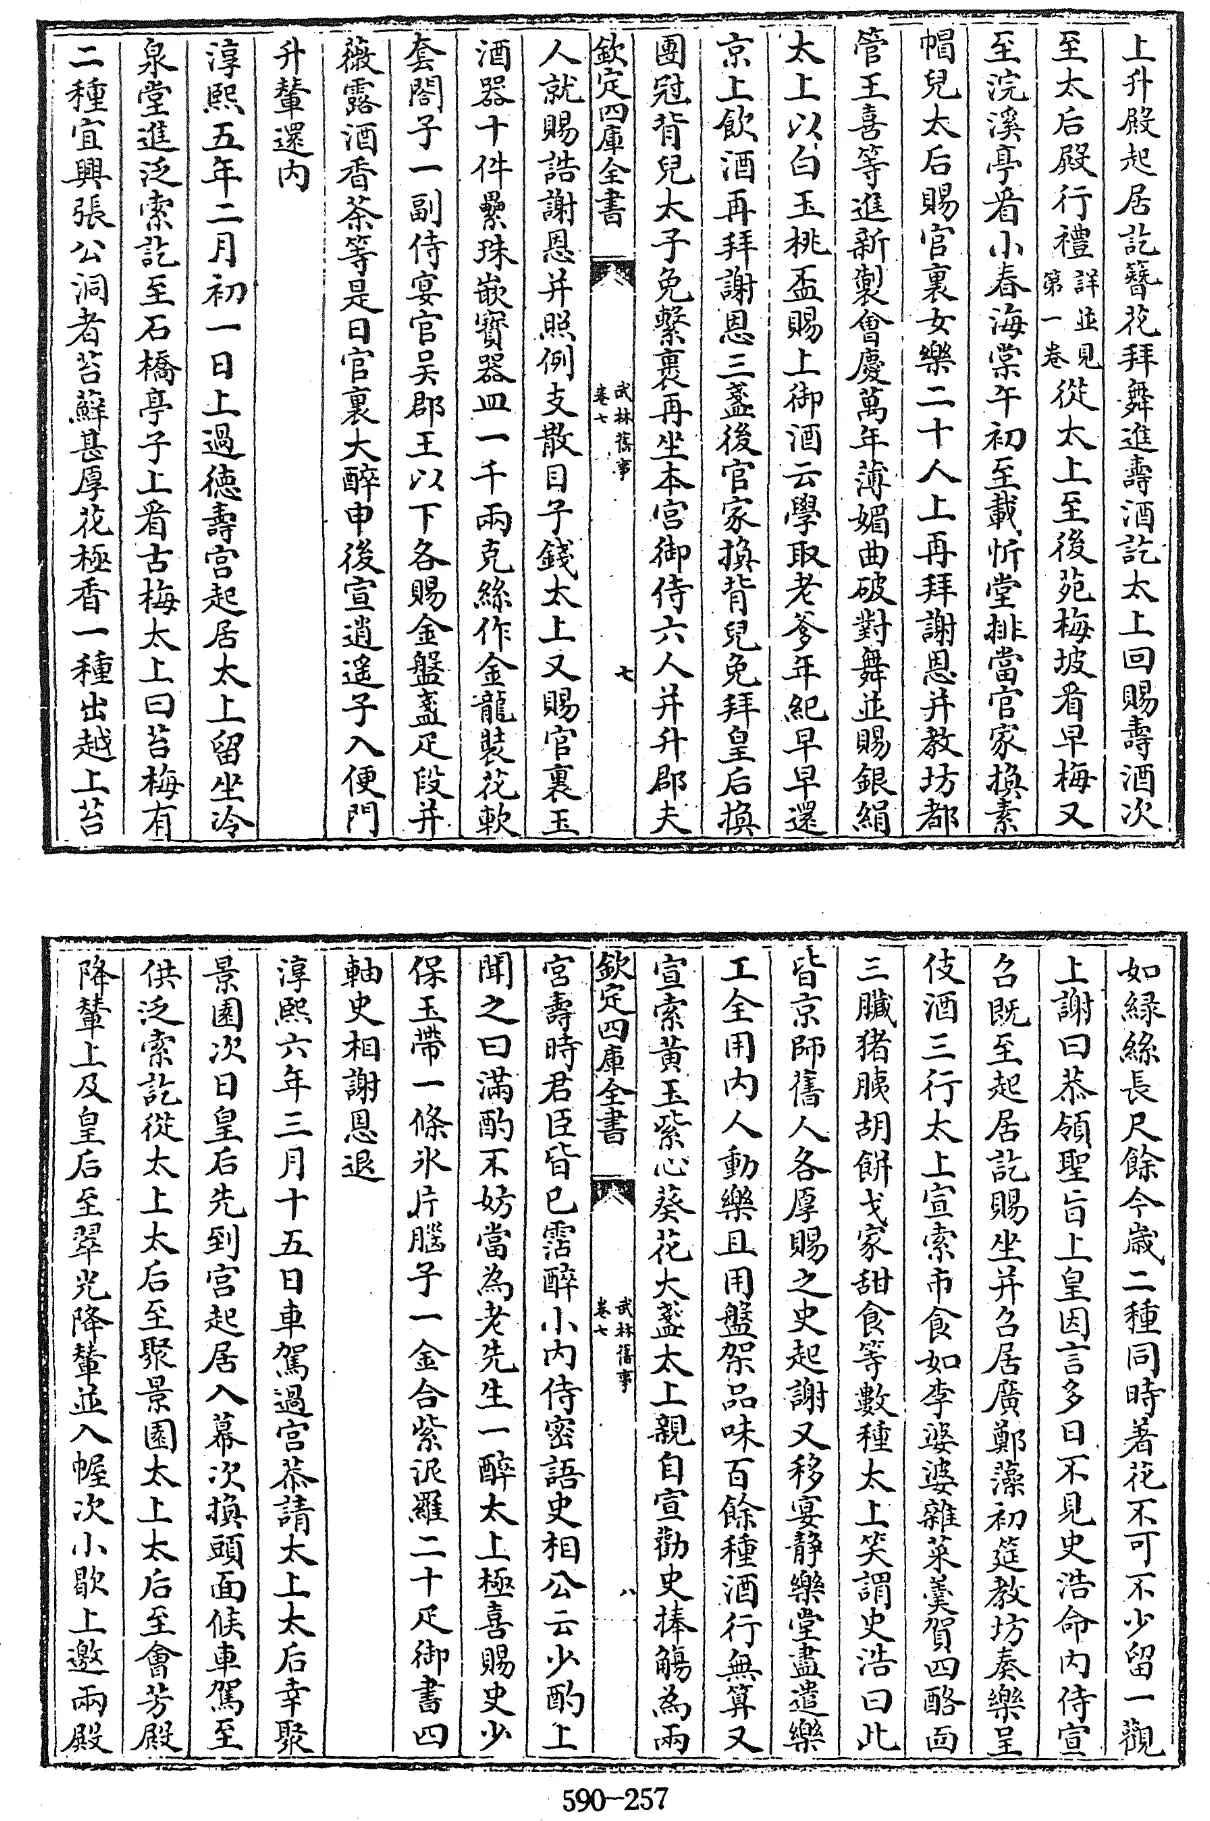 上升殿起居訖簪花拜舞進壽酒訖太上回賜壽酒次
至太后殿行禮詳並見第一卷從太上至後苑梅坡看早梅又
至浣溪亭看小春海棠午初至載忻堂排當官家換素
帽兒太后賜官裏女樂二十人上再拜謝恩并教坊都
管王喜等進新製會慶萬年薄媚曲破對舞並賜銀絹
太上以白玉桃盃賜上御酒云學取老爹年紀早早還
京上飲酒再拜謝恩三盞後官家換背兒免拜皇后換
團冠背兒太子免繫裹再坐本宮御侍六人并升郡夫
欽定四庫全書
武林舊事
卷七
七
人就賜誥謝恩并照例支散目子錢太上又賜官裏玉
酒器十件纍珠嵌寳器皿一千兩克絲作金龍裝花軟
套閣子一副侍宴官吴郡王以下各賜金盤盞疋段并
薇露酒香茶等是日官裏大醉申後宣逍遥子入便門
升輦還内
淳熙五年二月初一日上過徳壽宮起居太上留坐冷
泉堂進泛索訖至石橋亭子上看古梅太上曰苔梅有
二種宜興張公洞者苔蘚甚厚花極香一種出越上苔
如緑絲長尺餘今歳二種同時著花不可不少留一觀
上謝曰恭領聖旨上皇因言多日不見史浩命内侍宣
召既至起居訖賜坐并召居廣鄭藻初筵教坊奏樂呈
伎酒三行太上宣索市食如李婆婆雜菜羮賀四酪面
三臓猪胰胡餅戈家甜食等數種太上笑謂史浩曰此
皆京師舊人各厚賜之史起謝又移宴静樂堂盡遣樂
工全用内人動樂且用盤架品味百餘種酒行無算又
宣索黄玉紫心葵花大盞太上親自宣勸史捧觴為兩
欽定四庫全書
武林舊事
卷七
八
宮壽時君臣皆已霑醉小内侍密語史相公云少酌上
聞之曰滿酌不妨當為老先生一醉太上極喜賜史少
保玉帶一條氷片腦子一金合紫泥羅二十疋御書四
軸史相謝恩退
淳熙六年三月十五日車駕過宮恭請太上太后幸聚
景園次日皇后先到宮起居入幕次換頭面候車駕至
供泛索訖從太上太后至聚景園太上太后至會芳殿
降輦上及皇后至翠光降輦並入幄次小歇上邀兩殿
590-257